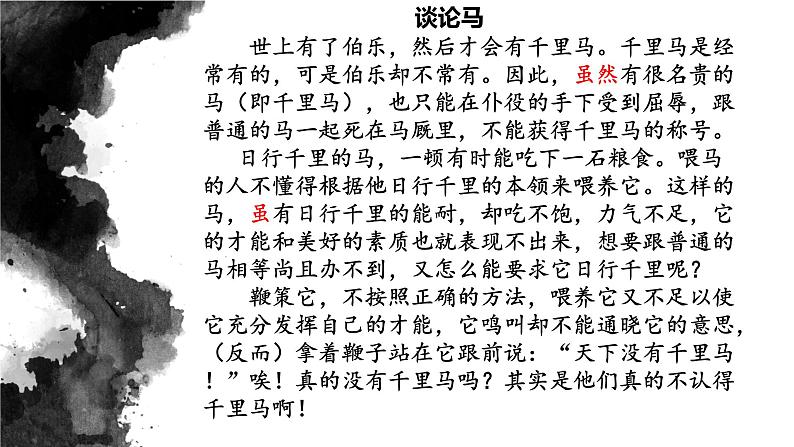 谈论马
世上有了伯乐，然后才会有千里马。千里马是经
常有的，可是伯乐却不常有。因此，虽然有很名贵的
马（即千里马），也只能在仆役的手下受到屈辱，跟
普通的马一起死在马厩里，不能获得千里马的称号。
日行千里的马，一顿有时能吃下一石粮食。喂马
的人不懂得根据他日行千里的本领来喂养它。这样的
马，虽有日行千里的能耐，却吃不饱，力气不足，它
的才能和美好的素质也就表现不出来，想要跟普通的
马相等尚且办不到，又怎么能要求它日行千里呢？
鞭策它，不按照正确的方法，喂养它又不足以使
它充分发挥自己的才能，它鸣叫却不能通晓它的意思，
（反而）拿着鞭子站在它跟前说：“天下没有千里马
！”唉！真的没有千里马吗？其实是他们真的不认得
千里马啊！